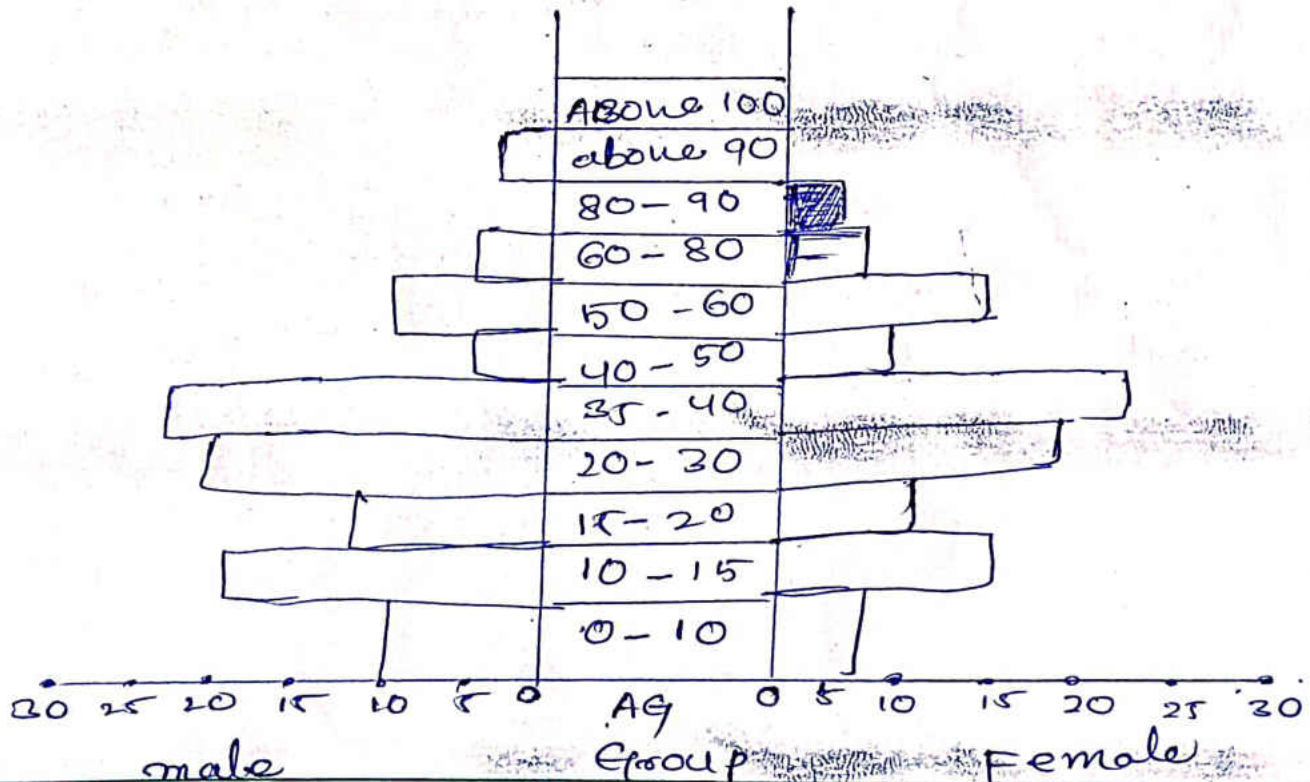 ABOVE 100
above 90
80 - 90
60 - 80
50 - 60
40 - 50
35 - 40
20 - 30
15 - 20
10 - 15
0 - 10
30 25 20 15 10 5 0 AG 0 5 10 15 20 25 30
male Group Female